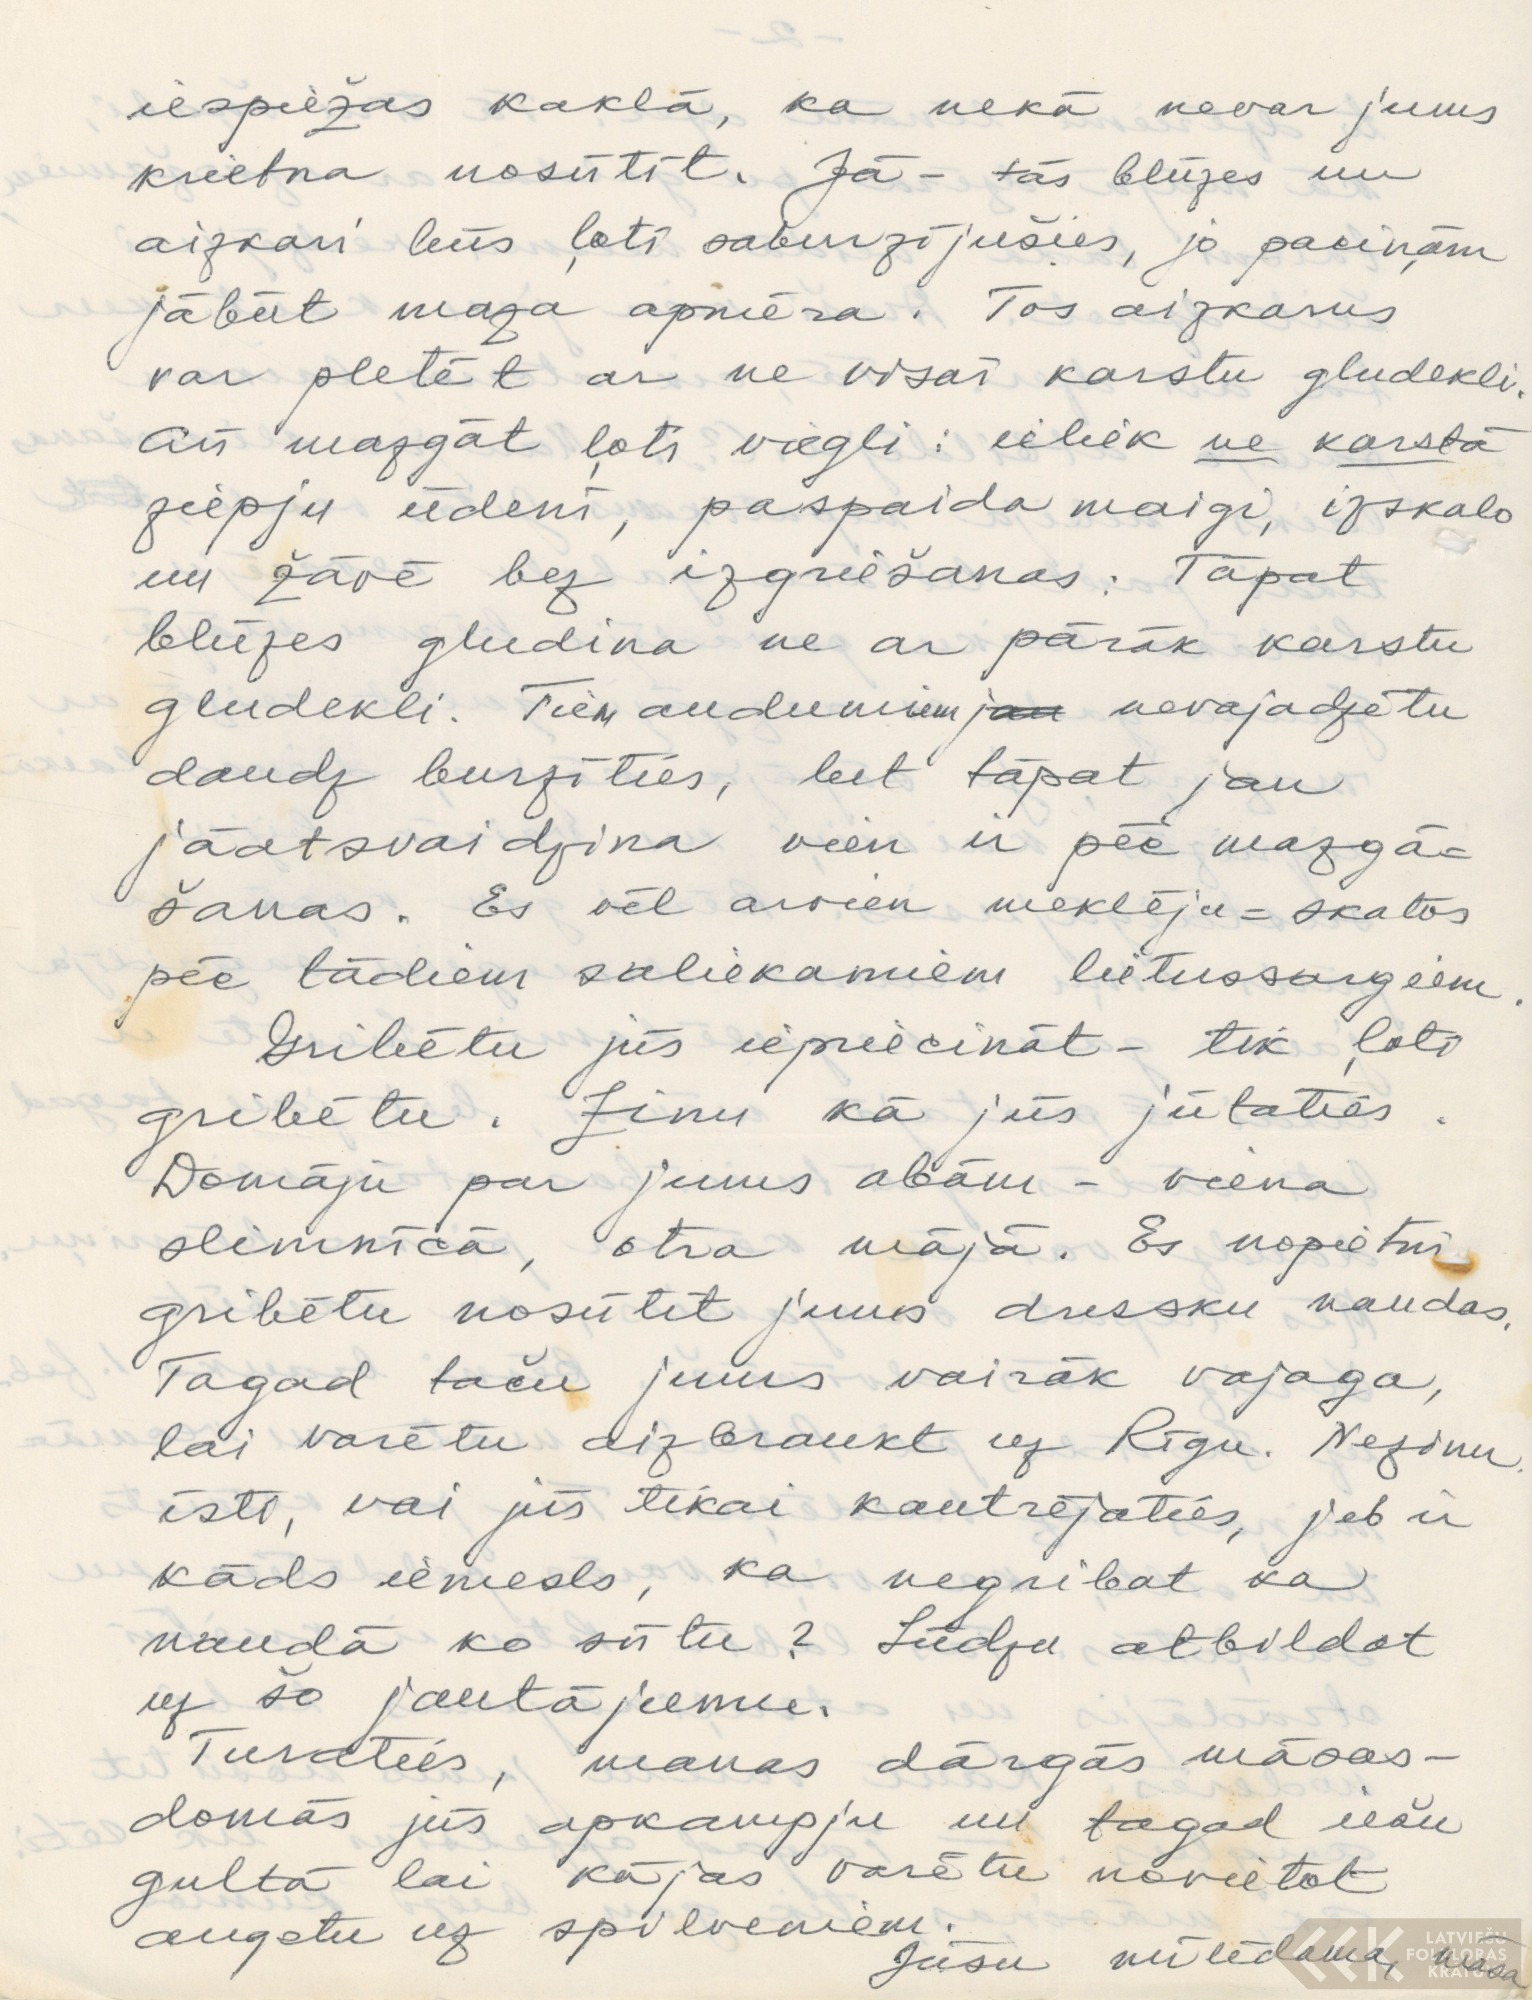 iespiežas kaklā, ka nekā nevar jums
krietna nosūtīt. Jā - tās blūzes un
aizkari būs ļoti saburzījušies, jo paciņām
jābūt maza apmēra. Tos aizkarus
var pletēt ar ne visai karstu gludekli.
Arī mazgāt ļoti viegli: ieliek ne karstā
ziepju ūdenī, paspaida maigi, izskalo
un žāvē bez izgriešanas. Tāpat
blūzes gludina ne ar pārāk karstu
gludekli. Tiem audumiem jau nevajadzētu
daudz burzīties, bet tāpat jau
jāatsvaidzina vien ir pēc mazgā=
šanas. Es vēl arvien meklēju = skatos
pēc tādiem saliekamiem lietussargiem.
Gribētu jūs iepriecināt - tik ļoti
gribētu. Zinu kā jūs jūtaties.
Domāju par jums abām - viena
slimnīcā, otra mājā. Es nopietni
gribētu nosūtīt jums drussku naudas.
Tagad taču jums vairāk vajaga,
lai varētu aizbraukt uz Rīgu. Nezinu
īsti, vai jūs tikai kautrējaties, jeb ir
kāds iemesls, ka negribat ka
naudā ko sūtu? Lūdzu atbildat
uz šo jautājumu.
Turaties, manas dārgās māsas -
domās jūs apkampju un tagad iešu
gultā lai kājas varētu novietot
augstu uz spilveniem.
Jūsu mīlēdama, māsa
LATVIEŠU
FOLKLORAS
KRĀTUVE